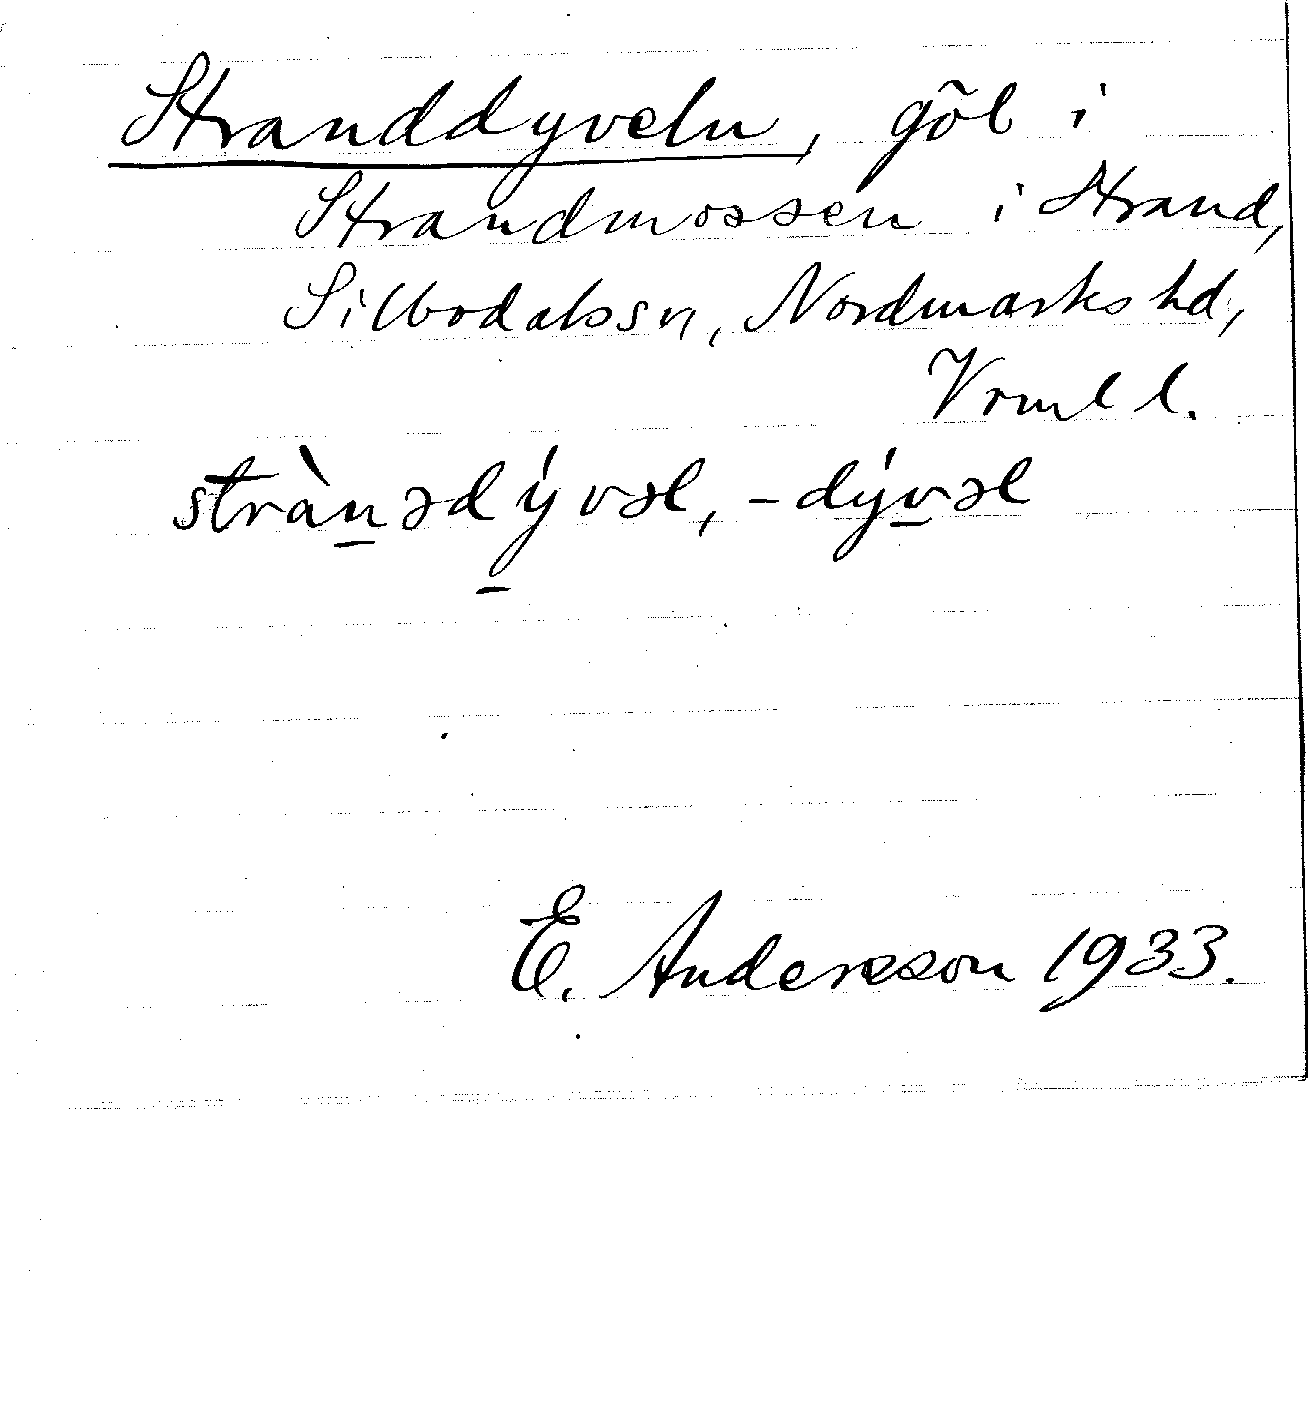 Stranddyveln, göl i
Strandmossen i Strand,
Silbodalssn, Nordmarks hd,
Vrml l.
stràn̲ədý̲vəl, -dýv̲əl
E. Andersson 1933.